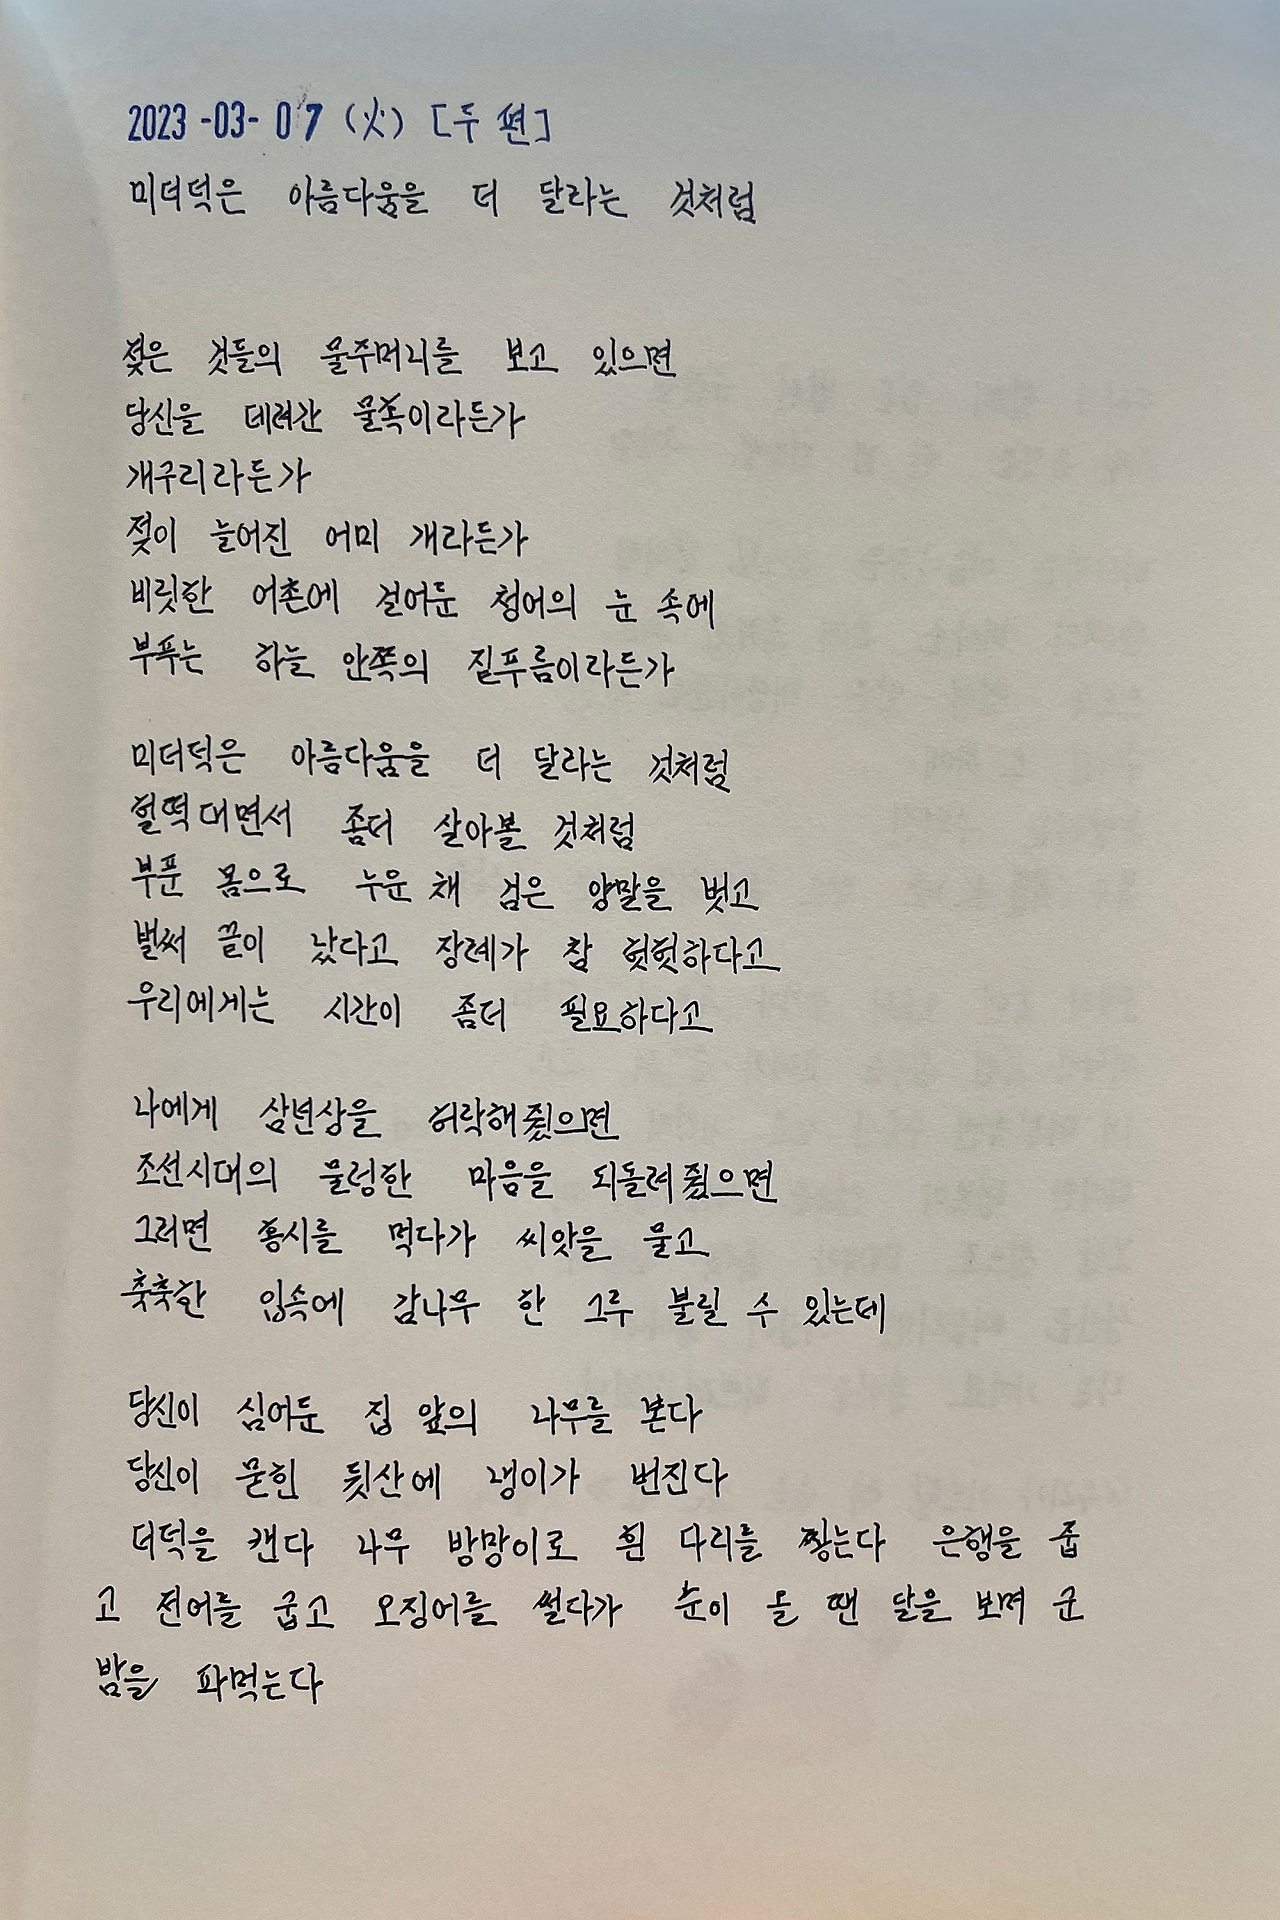 2023-03-07 (火) [두 편]
미더덕은 아름다움을 더 달라는 것처럼
젖은 것들의 물주머니를 보고 있으면
당신을 데려간 물혹이라든가
개구리라든가
젖이 늘어진 어미 개라든가
비릿한 어촌에 걸어둔 청어의 눈 속에
부푸는 하늘 안쪽의 짙푸름이라든가
미더덕은 아름다움을 더 달라는 것처럼
헐떡대면서 좀더 살아볼 것처럼
부푼 몸으로 누운 채 검은 양말을 벗고
벌써 끝이 났다고 장례가 참 헛헛하다고
우리에게는 시간이 좀더 필요하다고
나에게 삼년상을 허락해줬으면
조선시대의 물렁한 마음을 되돌려줬으면
그러면 홍시를 먹다가 씨앗을 물고
축축한 입속에 감나무 한 그루 불릴 수 있는데
당신이 심어둔 집 앞의 나무를 본다
당신이 묻힌 뒷산에 냉이가 번진다
더덕을 캔다 나무 방망이로 흰 다리를 찧는다 은행을 줍
고 전어를 굽고 오징어를 썰다가 눈이 올 땐 달을 보며 군
밤을 파먹는다